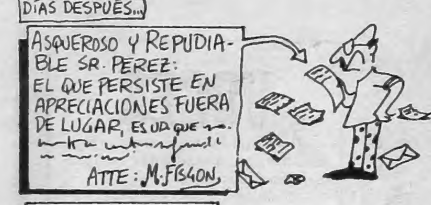 DÍAS DESPUÉS...
ASQUEROSO Y REPUDIA-
BLE SR. PEREZ:
EL QUE PERSISTE EN
APRECIACIONES FUERA
DE LUGAR, ES UD. QUE
ATTE: M. FISGON,